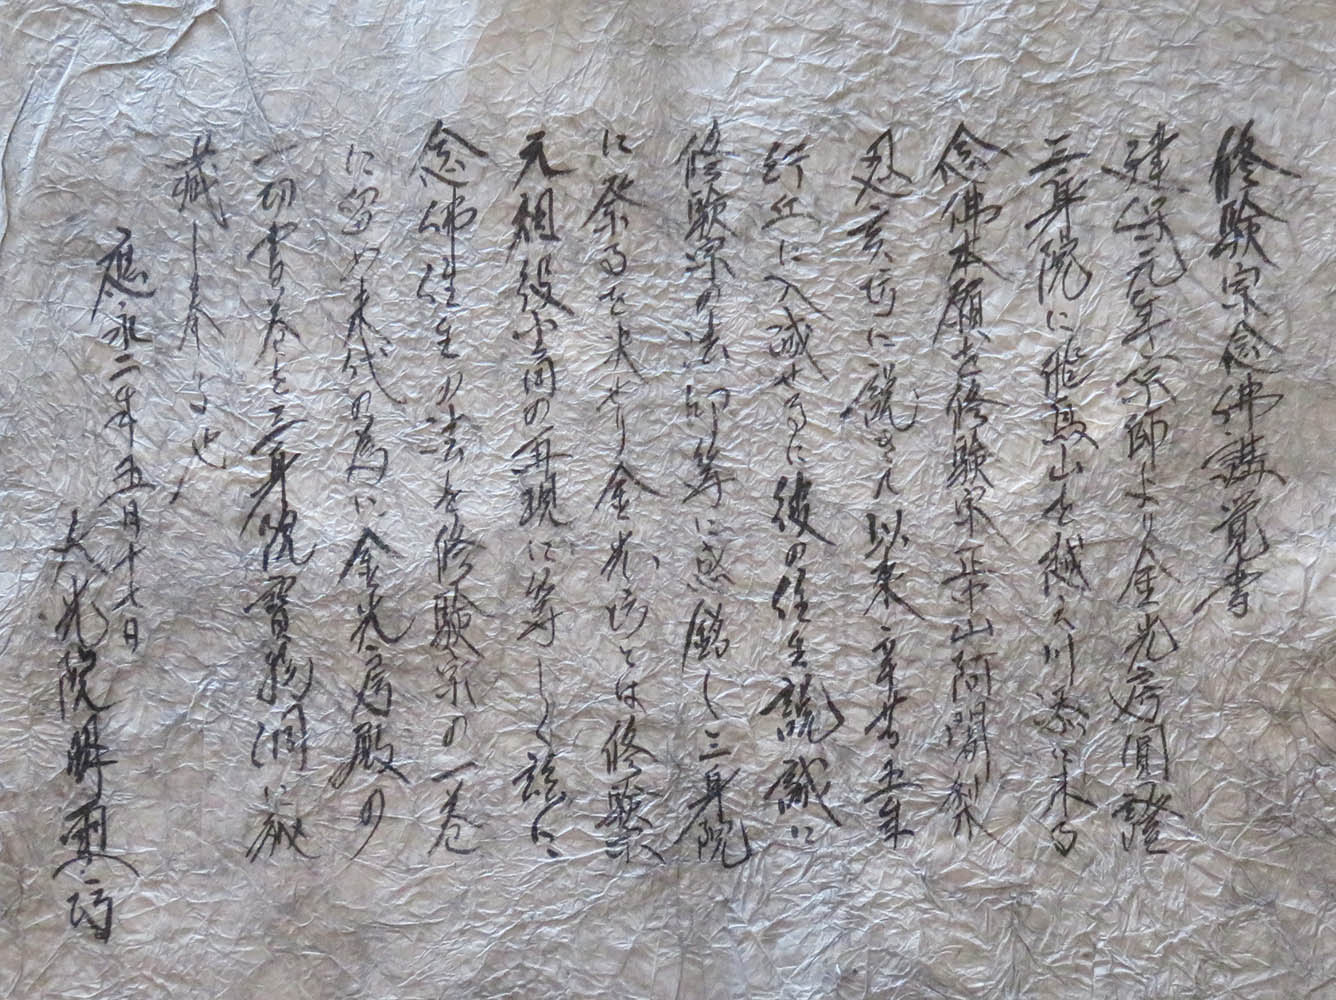 修験宗念佛講覚書
建保元年宗師より金光房圓證
三身院に飛馬山を越え川添に来る
念佛本願を修験宗本山阿闍梨
忍亥坊に説きて以来幸若五年
行丘に入滅せるに彼の往生説誠に
修験宗の法師等に感銘し三身院
に祭るを史せり金光坊とは修験宗
元祖役小角の再現に等しく茲に
念佛往生の法を修験宗の一巻
に留め末代の為に金光房殿の
一切書巻を三身院寶物洞に蔵
蔵し奉るもの也
應永二年五月十七日
大光院明覃坊